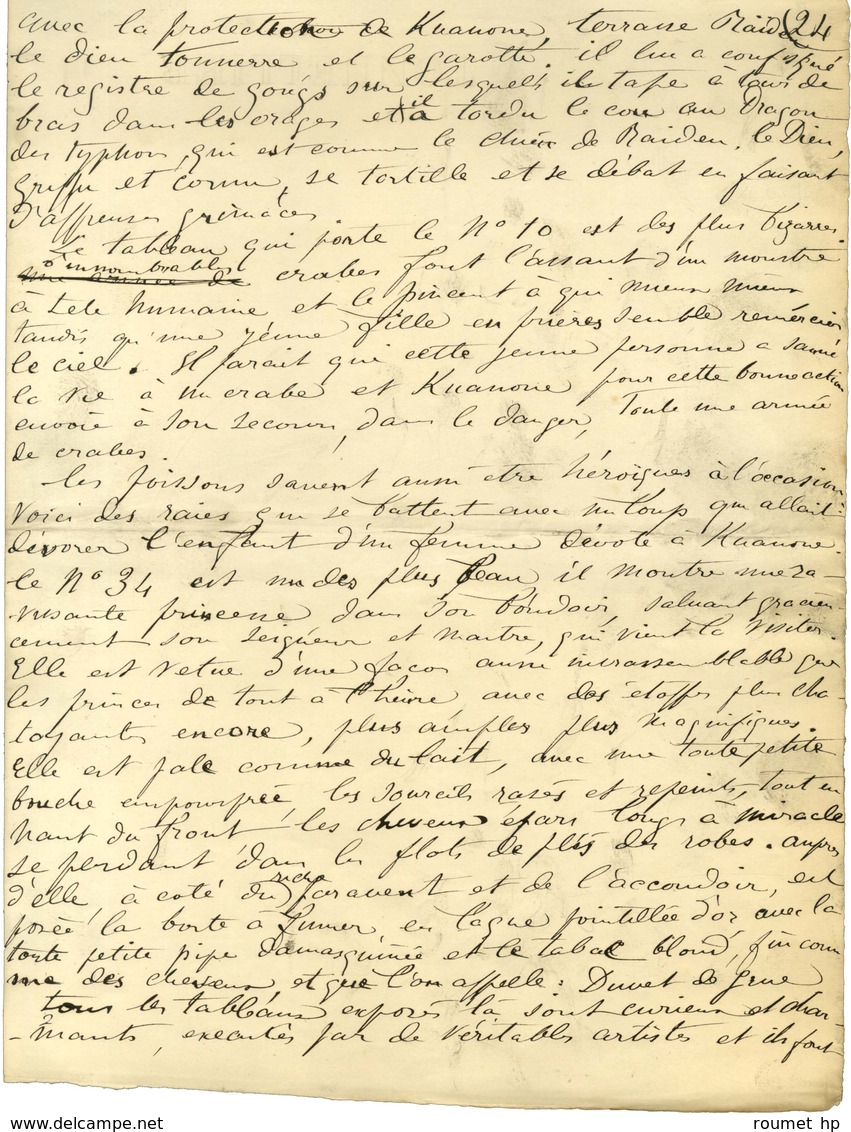 avec la protection de Kuanone, terrasse Raïden 24
le dieu tonnerre et le garotte. il lui a confisqué
le registre de gongs sur lesquels il tape à tour de
bras dans les orages et il a tordu le cou au Dragon
des typhons, qui est comme le chien de Raiden. le Dieu,
griffu et cornu, se tortille et se débat en faisant
d'affreuses grimaces
Le tableau qui porte le N° 10 est des plus bizarres.
d'innombrables
une armée de crabes font l'assaut d'un monstre
à tete humaine et le pincent à qui mieux mieux
tandis qu'une jeune fille en prières semble remercier
le ciel. Il parait qui cette jeune personne a sauvé
la vie à un crabe et Kuanone pour cette bonne action
envoie à son secours, dans le danger, toute une armée
de crabes.
les poissons savent aussi etre héroiques à l'occasion
voici des raies qui se battent avec un loup qui allait
dévorer l'enfant d'un femme dévote à Kuanone.
le N° 34 est un des plus beau il montre une ra-
vissante princesse dans son boudoir, saluant gracieu-
cement son seigneur et maitre, qui vient la visiter.
Elle est vetue d'une façon aussi invraissemblable que
les princes de tout à l'heure avec des étoffes plus cha-
toyantes encore, plus amples plus magnifiques.
Elle est pale comme du lait, avec une toute petite
bouche empourprée, les sourcils rasés et repeints, tout en
haut du front les cheveux épars longs à miracle
se perdant dans les flots de plis des robes. aupres
d'elle, à coté du riche paravent et de l'accoudoir, est
posée la boite à fumer en laque pointillée d'or avec la
toute petite pipe damasquinée et le tabac blond, fin com
me des cheveux et que l'on appelle : Duvet de grue
tous les tableaux exposés là sont curieux et char-
-mants, executés par de véritables artistes et ils font
roumet hp